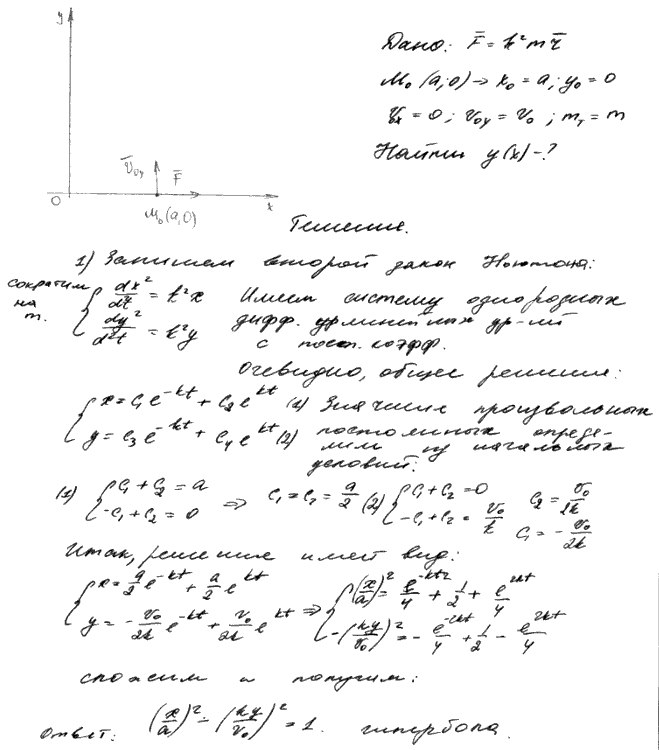 y
Дано: F̄ = k²m r̄
M₀(a;0) → x₀ = a; y₀ = 0
Vₓ = 0; V₀y = V₀; mₜ = m
Найти y(x) - ?
V̄₀y F̄
O M₀(a,0) x
Решение.
1) Запишем второй закон Ньютона:
сократим на m.
{ dx²/d²t = k²x
{ dy²/d²t = k²y
Имеем систему однородных
дифф. ур-ий
с пост. коэфф.
Очевидно, общее решение:
{ x = C₁e^(-kt) + C₂e^(kt) (1)
{ y = C₃e^(-kt) + C₄e^(kt) (2)
Значение произвольных
постоянных опреде-
лим из начальных
условий:
(1) { C₁ + C₂ = a
{ -C₁ + C₂ = 0
⇒ C₁ = C₂ = a/2
(2) { C₁ + C₂ = 0
{ -C₁ + C₂ = V₀/k
C₂ = V₀/2k
C₁ = - V₀/2k
Итак, решение имеет вид:
{ x = a/2 e^(-kt) + a/2 e^(kt)
{ y = - V₀/2k e^(-kt) + V₀/2k e^(kt)
⇒ { (x/a)² = e^(-kt2)/4 + 1/2 + e^(2kt)/4
{ -(ky/V₀)² = - e^(-2kt)/4 + 1/2 - e^(2kt)/4
сложим и получим:
Ответ: (x/a)² - (ky/V₀)² = 1. гипербола.